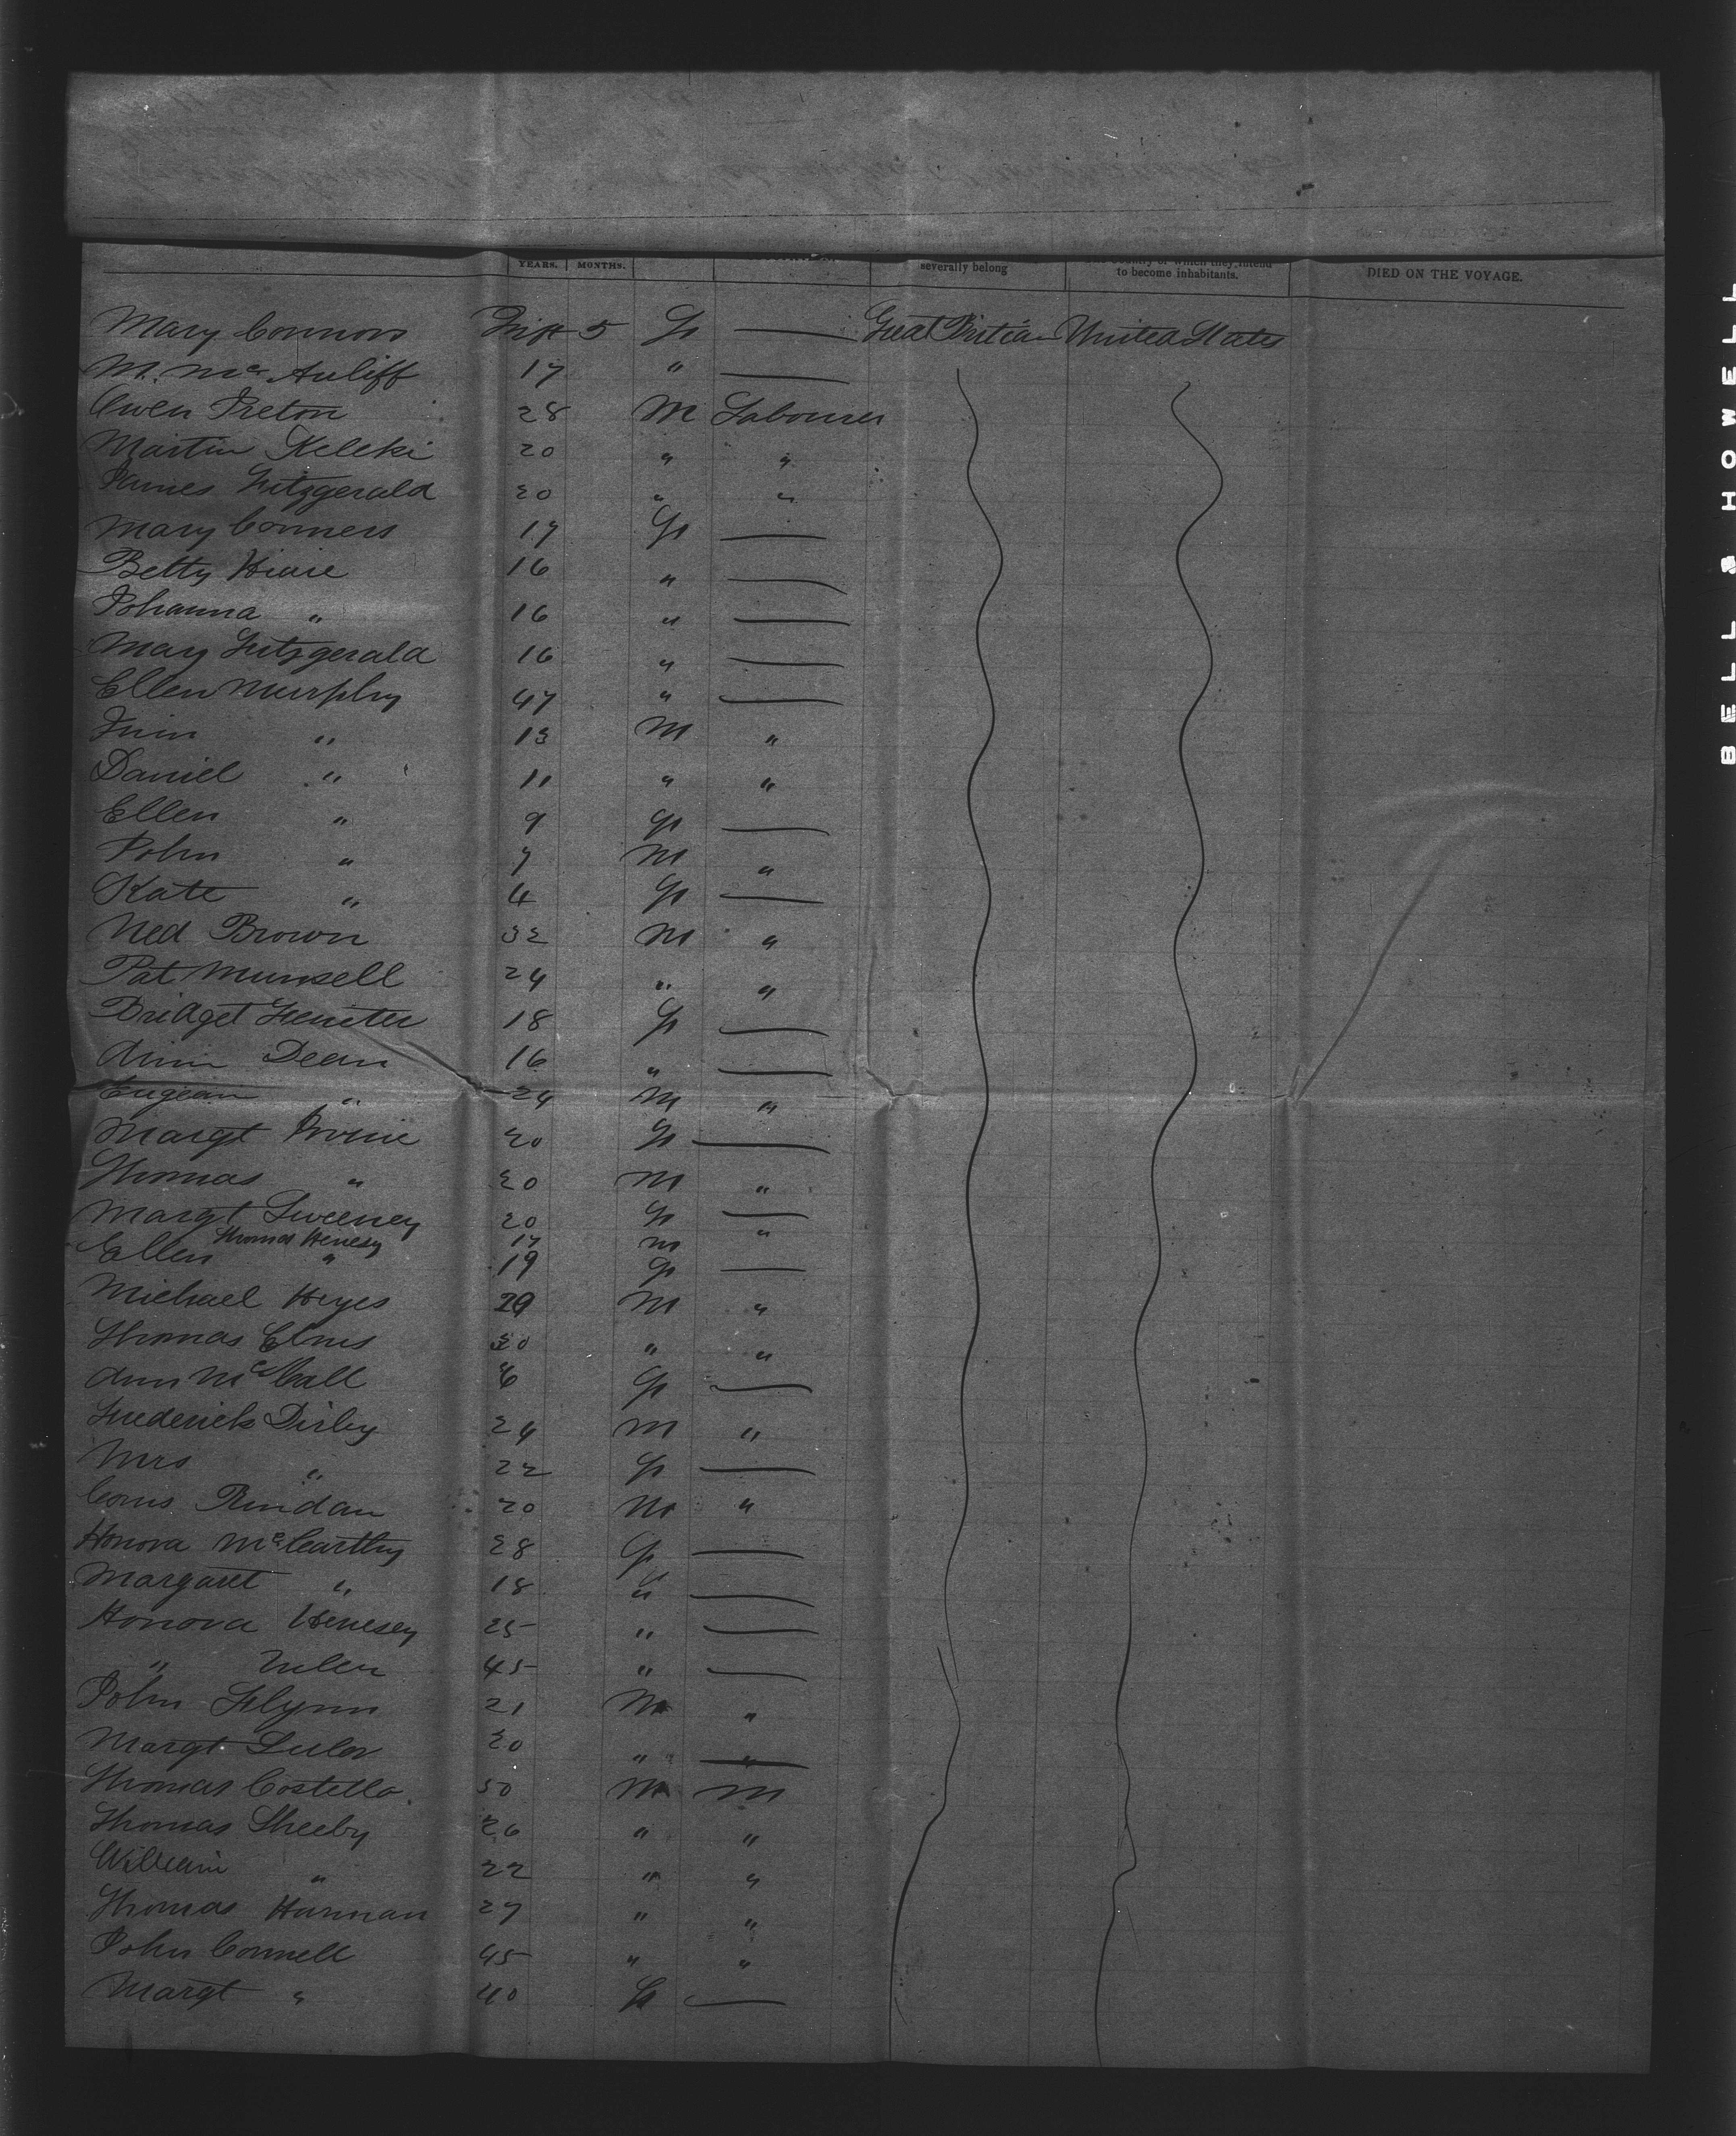 YEARS. MONTHS. severally belong to become inhabitants. DIED ON THE VOYAGE.
Mary Connors 5 Great Britian United States
M. Mc Auliff 17 "
Owen Preton 28 M Labourer
Martin Keleki 20 " "
James Fitzgerald 20 " "
Mary Conners 17 F
Betty 16 "
Johanna " 16 "
Mary Fitzgerald 16 "
Ellen Murphy 47 "
" 13 M "
Daniel " 11 " "
Ellen " 9 F
John " 7 M "
Kate " 4 F
Ned Brown 32 M "
Pat Munsell 24 " "
Bridget 18 F
Ann Dean 16 "
Eugean " 24 M "
Margt 20 F
Thomas " 20 M "
Margt Sweeney 20 F
Thomas Henesy 17 M "
Ellen " 19 F
Michael Heyes 29 M "
Thomas 30 " "
Ann McCall 6 F
Frederick Dirby 24 M "
Mrs " 22 F
Corns Rindan 20 M "
Honora McCarthy 28 F
Margaret " 18 "
Honora Henesey 25 "
" 45 "
John Flynn 21 M "
Margt 20 " "
Thomas Costello. 50 M M
Thomas Sheeby 26 " "
William " 22 " "
Thomas Harman 27 " "
John Connell 45 " "
Margt " 40 F
BELL & HOWELL